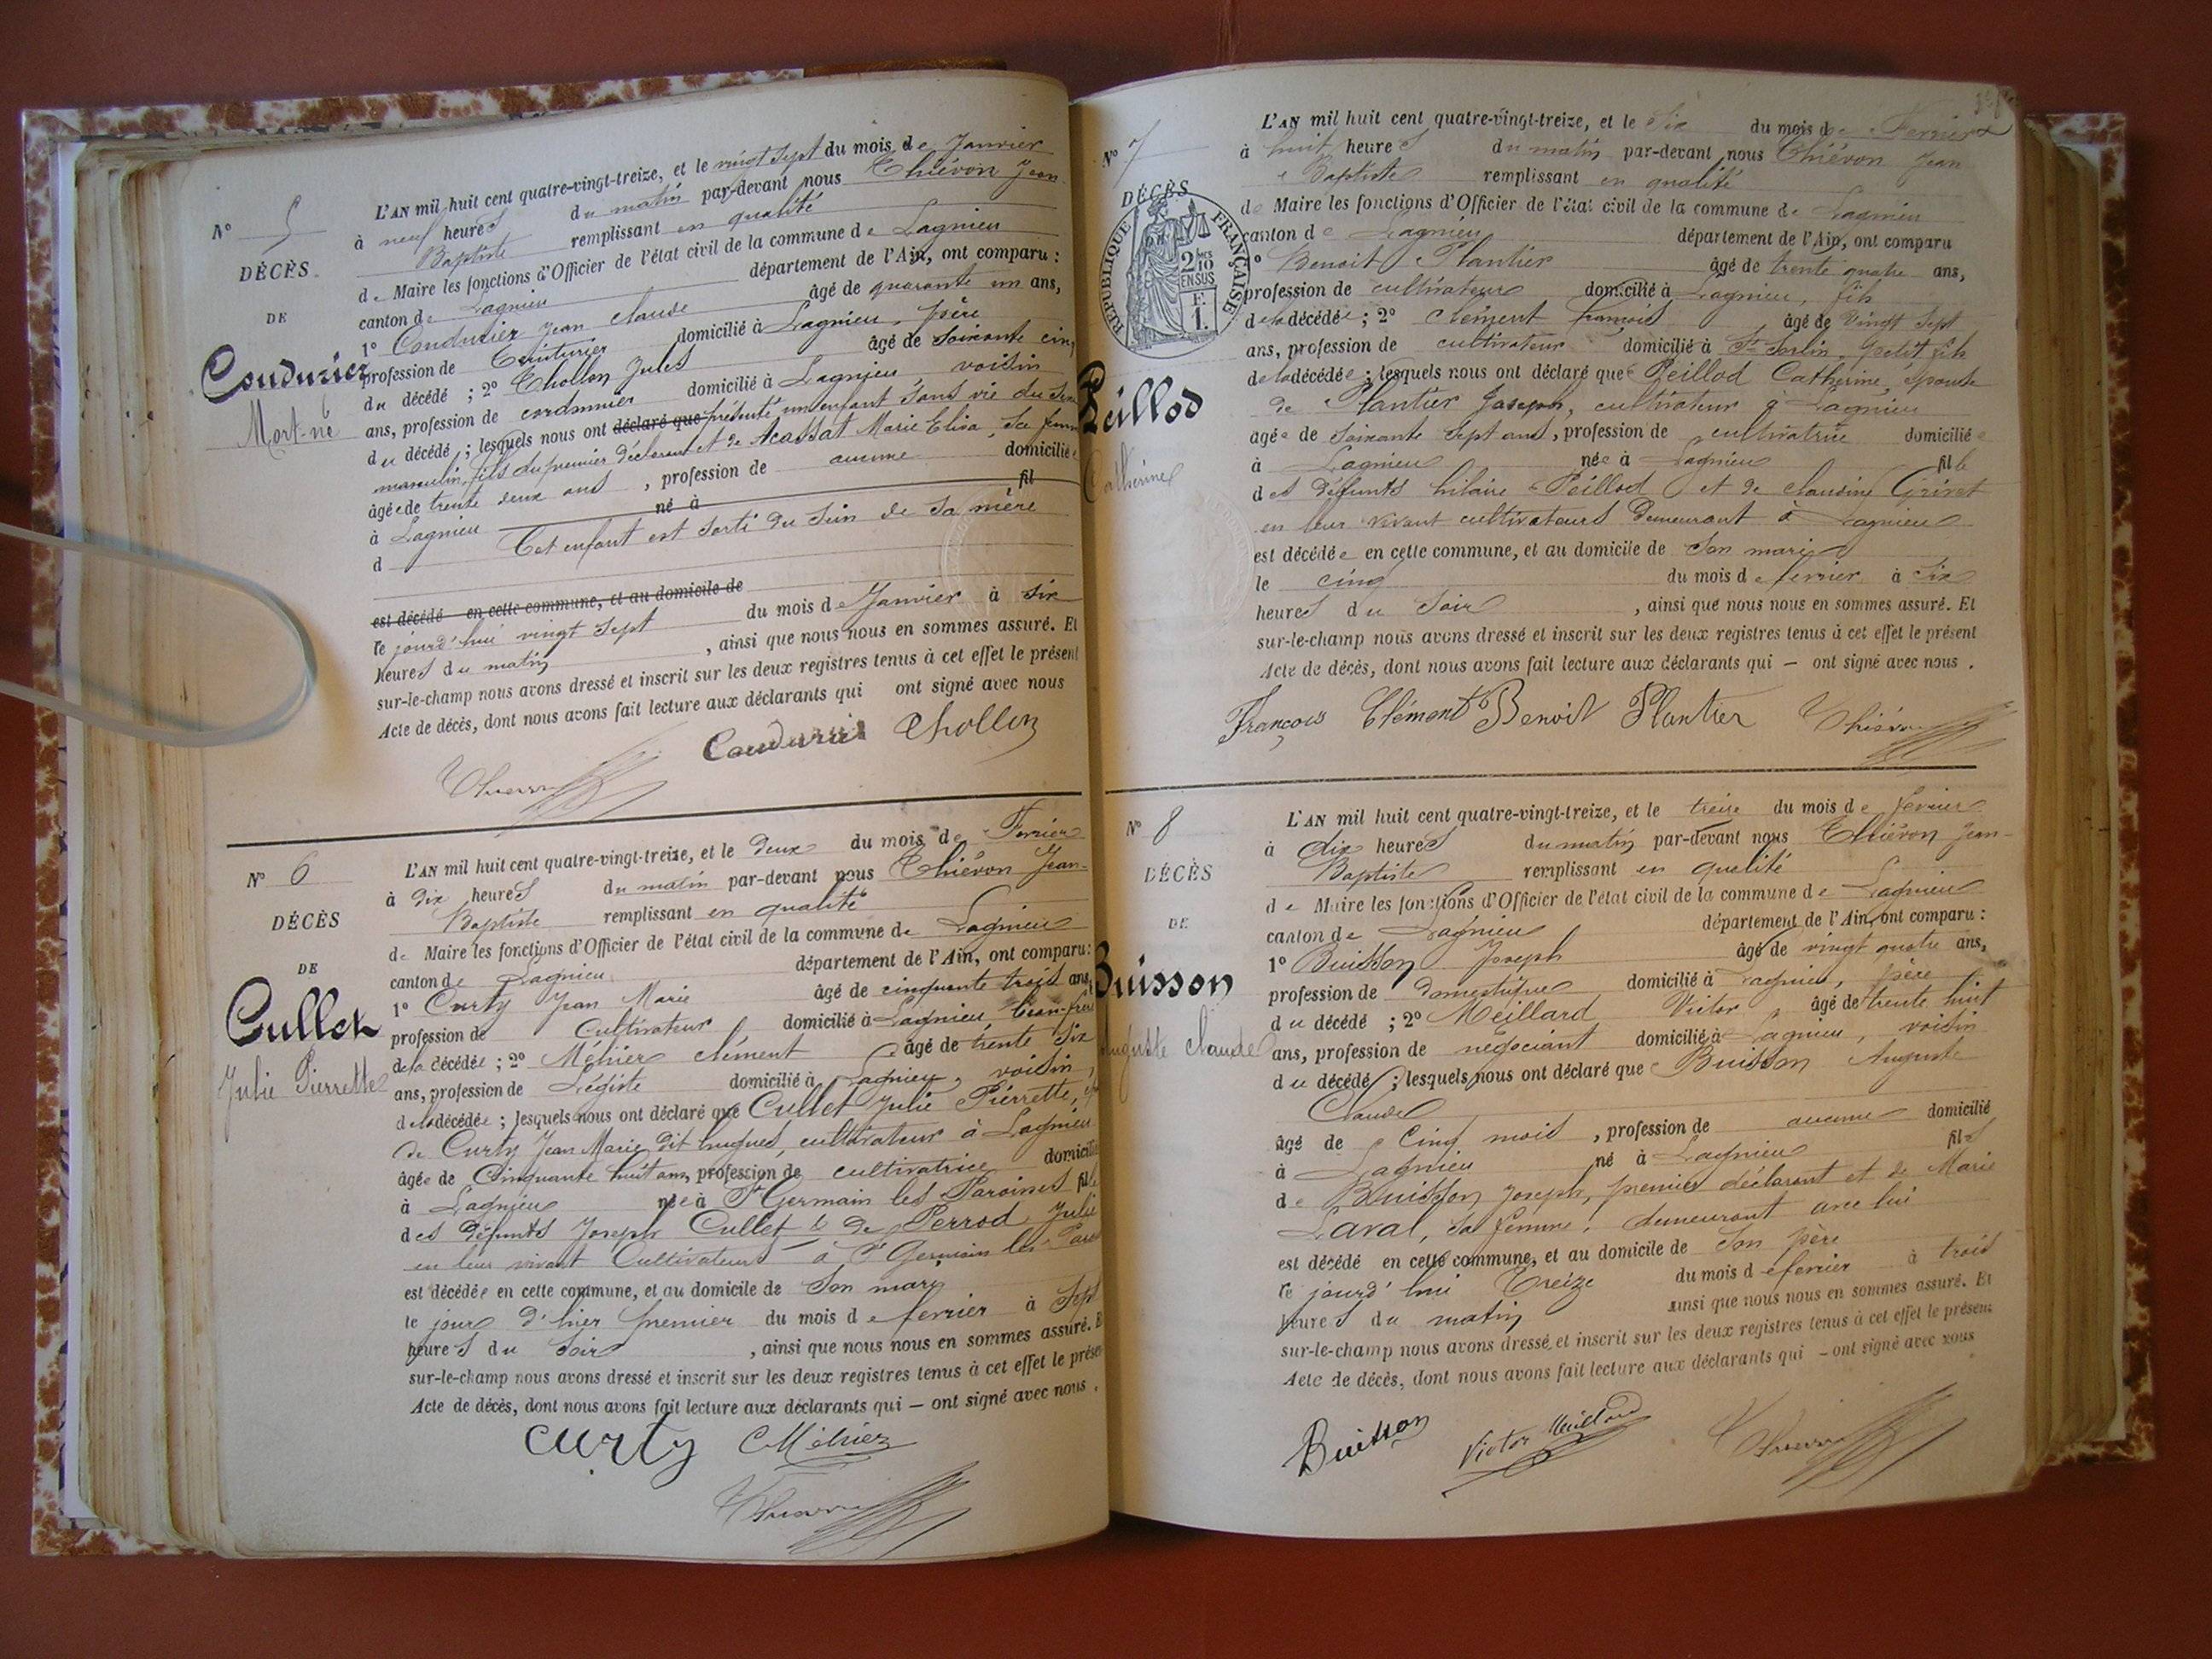 N° 5
DÉCÈS
DE
Conduzier
Mort-né
L'AN mil huit cent quatre-vingt-treize, et le vingt sept du mois de Janvier
à neuf heures du matin par-devant nous Thiévon Jean-
Baptiste remplissant en qualité
de Maire les fonctions d'Officier de l'état civil de la commune de Lagnieu
canton de Lagnieu département de l'Ain, ont comparu :
1° Conduzier Jean Claude âgé de quarante un ans,
profession de Teinturier domicilié à Lagnieu, père
du décédé ; 2° Chollon Jules âgé de soixante cinq
ans, profession de cordonnier domicilié à Lagnieu voisin
du décédé ; lesquels nous ont déclaré que présenté un enfant sans vie du sexe
masculin, fils du premier déclarant et de Acassat Marie Elisa, sa femme
âgée de trente deux ans, profession de aucune domiciliée
à Lagnieu né à fil
d Cet enfant est sorti du sein de sa mère
est décédé en cette commune, et au domicile de
le jourd'hui vingt sept du mois de Janvier à six
heures du matin, ainsi que nous nous en sommes assuré. Et
sur-le-champ nous avons dressé et inscrit sur les deux registres tenus à cet effet le présent
Acte de décès, dont nous avons fait lecture aux déclarants qui ont signé avec nous
Chollon
N° 6
DÉCÈS
DE
Cullet
Julie Pierrette
L'AN mil huit cent quatre-vingt-treize, et le deux du mois de Ferrier
à dix heures du matin par-devant nous Thiévon Jean-
Baptiste remplissant en qualité
de Maire les fonctions d'Officier de l'état civil de la commune de Lagnieu
canton de Lagnieu département de l'Ain, ont comparu :
1° Curty Jean Marie âgé de cinquante trois ans,
profession de Cultivateur domicilié à Lagnieu, beau-frère
de la décédée ; 2° Méhier clément âgé de trente six
ans, profession de Légiste domicilié à Lagnieu, voisin,
de la décédée ; lesquels nous ont déclaré que Cullet Julie Pierrette,
de Curty Jean Marie dit hugues, cultivateur à Lagnieu
âgée de Cinquante huit ans, profession de cultivatrice domicilié
à Lagnieu née à St Germain les Paroisses fille
des défunts Joseph Cullet & de Perrod Julie
en leur vivant Cultivateurs à St Germain les
est décédée en cette commune, et au domicile de son mari
le jour d'hier premier du mois de ferrier à sept
heures du soir, ainsi que nous nous en sommes assuré. Et
sur-le-champ nous avons dressé et inscrit sur les deux registres tenus à cet effet le présent
Acte de décès, dont nous avons fait lecture aux déclarants qui – ont signé avec nous.
Curty CMéhier
N° 7
DÉCÈS
RÉPUBLIQUE FRANÇAISE
2 10
EN SUS
F.
1.
Peillod
Catherine
L'AN mil huit cent quatre-vingt-treize, et le Six du mois de Ferrier
à huit heures du matin par-devant nous Thiévon Jean
Baptiste remplissant en qualité
de Maire les fonctions d'Officier de l'état civil de la commune de Lagnieu
canton de Lagnieu département de l'Ain, ont comparu
1° Benoit Plantier âgé de trente quatre ans,
profession de cultivateur domicilié à Lagnieu, fils
de la décédée ; 2° Clément françois âgé de Vingt sept
ans, profession de cultivateur domicilié à St Sorlin, petit fils
de la décédée ; lesquels nous ont déclaré que Peillod Catherine, épouse
de Plantier Joseph, cultivateur à Lagnieu
agée de soixante sept ans, profession de cultivatrice domiciliée
à Lagnieu née à Lagnieu fille
des défunts hilaire Peillod et de claudine Grinet
en leur vivant cultivateurs demeurant à Lagnieu
est décédée en cette commune, et au domicile de son mari
le cinq du mois de ferrier à six
heures du soir, ainsi que nous nous en sommes assuré. Et
sur-le-champ nous avons dressé et inscrit sur les deux registres tenus à cet effet le présent
Acte de décès, dont nous avons fait lecture aux déclarants qui – ont signé avec nous.
François Clément Benoit Plantier
N° 8
DÉCÈS
DE
Buisson
Auguste Claude
L'AN mil huit cent quatre-vingt-treize, et le treize du mois de ferrier
à dix heures du matin par-devant nous Thiévon Jean-
Baptiste remplissant en qualité
de Maire les fonctions d'Officier de l'état civil de la commune de Lagnieu
canton de Lagnieu département de l'Ain, ont comparu :
1° Buisson Joseph âgé de vingt quatre ans,
profession de domestique domicilié à Lagnieu, père
du décédé ; 2° Meillard Victor âgé de trente huit
ans, profession de négociant domicilié à Lagnieu, voisin
du décédé ; lesquels nous ont déclaré que Buisson Auguste
Claude
âgé de Cinq mois, profession de aucune domicilié
à Lagnieu né à Lagnieu fils
de Buisson Joseph, premier déclarant et de Marie
Laval, sa femme, demeurant avec lui
est décédé en cette commune, et au domicile de son père
le jourd'hui Treize du mois de ferrier à trois
heures du matin ainsi que nous nous en sommes assuré. Et
sur-le-champ nous avons dressé et inscrit sur les deux registres tenus à cet effet le présent
Acte de décès, dont nous avons fait lecture aux déclarants qui – ont signé avec nous
Buisson Victor Meillard